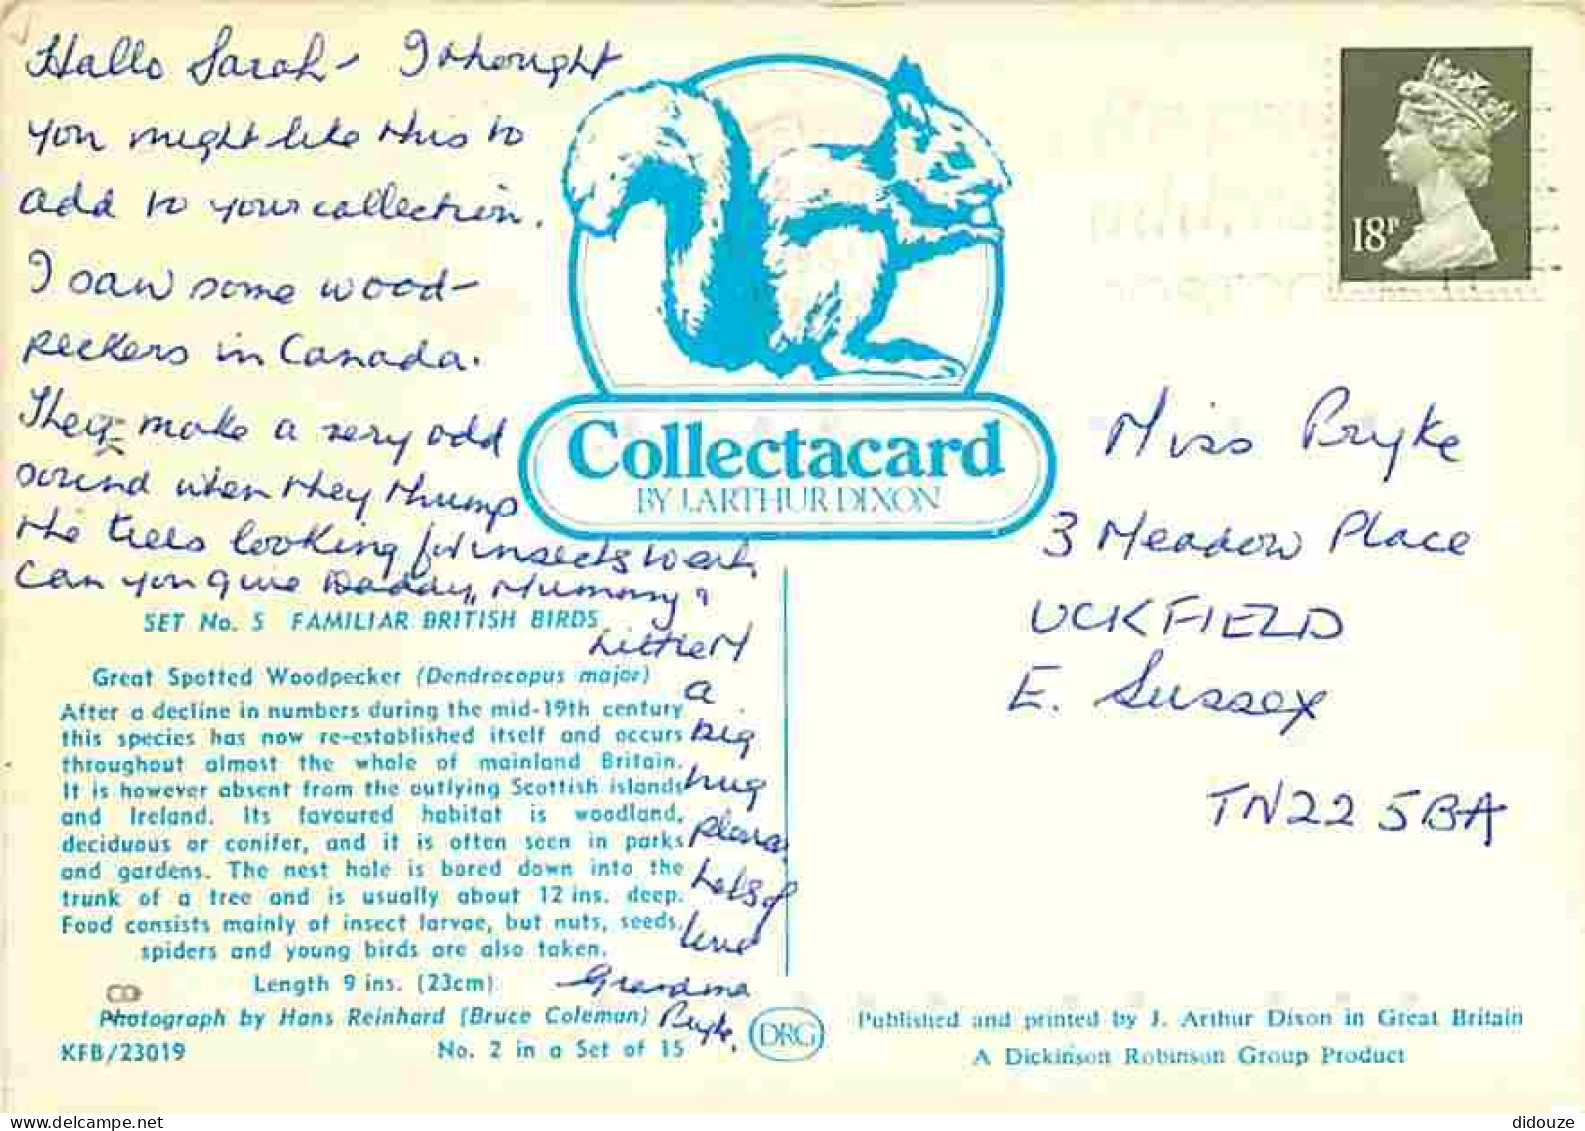 Hallo Sarah - I thought
you might like this to
add to your collection.
I saw some wood-
peckers in Canada.
They make a very odd
sound when they thump
the trees looking for insects
Can you give Daddy, Mummy &
Little M
a
big
hug
please
Lots of
love
Grandma
Bryke.
18P
Collectacard
BY J. ARTHUR DIXON
Miss Bryke
3 Meadow Place
UCKFIELD
E. Sussex
TN22 5BA
SET No. 5 FAMILIAR BRITISH BIRDS
Great Spotted Woodpecker (Dendrocopus major)
After a decline in numbers during the mid-19th century
this species has now re-established itself and occurs
throughout almost the whole of mainland Britain.
It is however absent from the outlying Scottish islands
and Ireland. Its favoured habitat is woodland,
deciduous or conifer, and it is often seen in parks
and gardens. The nest hole is bored down into the
trunk of a tree and is usually about 12 ins. deep.
Food consists mainly of insect larvae, but nuts, seeds,
spiders and young birds are also taken.
Length 9 ins. (23cm)
Photograph by Hans Reinhard (Bruce Coleman)
KFB/23019
No. 2 in a Set of 15
DRG
Published and printed by J. Arthur Dixon in Great Britain
A Dickinson Robinson Group Product
www.delcampe.net
didouze